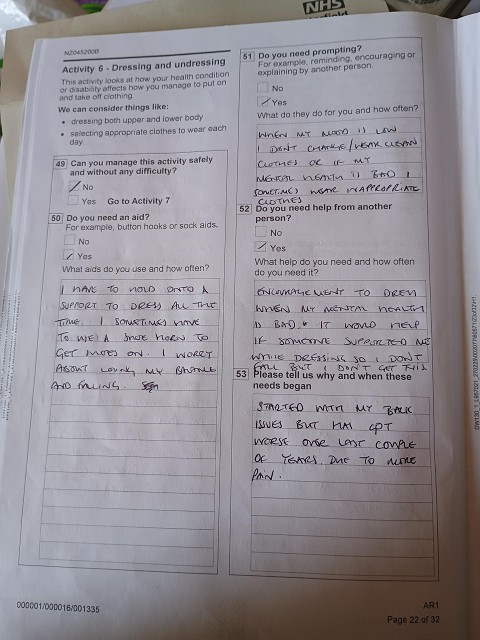 NHS
NZ045200B
Activity 6 - Dressing and undressing
This activity looks at how your health condition
or disability affects how you manage to put on
and take off clothing.
We can consider things like:
• dressing both upper and lower body
• selecting appropriate clothes to wear each
day.
49 Can you manage this activity safely
and without any difficulty?
No
Yes Go to Activity 7
50 Do you need an aid?
For example, button hooks or sock aids.
No
Yes
What aids do you use and how often?
I HAVE TO HOLD ONTO A
SUPPORT TO DRESS ALL THE
TIME. I SOMETIMES HAVE
TO USE A SHOE HORN TO
GET SHOES ON. I WORRY
ABOUT LOSING MY BALANCE
AND FALLING.
51 Do you need prompting?
For example, reminding, encouraging or
explaining by another person.
No
Yes
What do they do for you and how often?
WHEN MY MOOD IS LOW
I DON'T CHANGE/WEAR CLEAN
CLOTHES OR IF MY
MENTAL HEALTH IS BAD I
SOMETIMES WEAR INAPPROPRIATE
CLOTHES
52 Do you need help from another
person?
No
Yes
What help do you need and how often
do you need it?
ENCOURAGEMENT TO DRESS
WHEN MY MENTAL HEALTH
IS BAD. IT WOULD HELP
IF SOMEONE SUPPORTED ME
WHILE DRESSING SO I DON'T
FALL BUT I DON'T GET THIS
53 Please tell us why and when these
needs began
STARTED WITH MY BACK
ISSUES BUT HAS GOT
WORSE OVER LAST COUPLE
OF YEARS DUE TO MORE
PAIN.
000001/000016/001335
AR1
Page 22 of 32